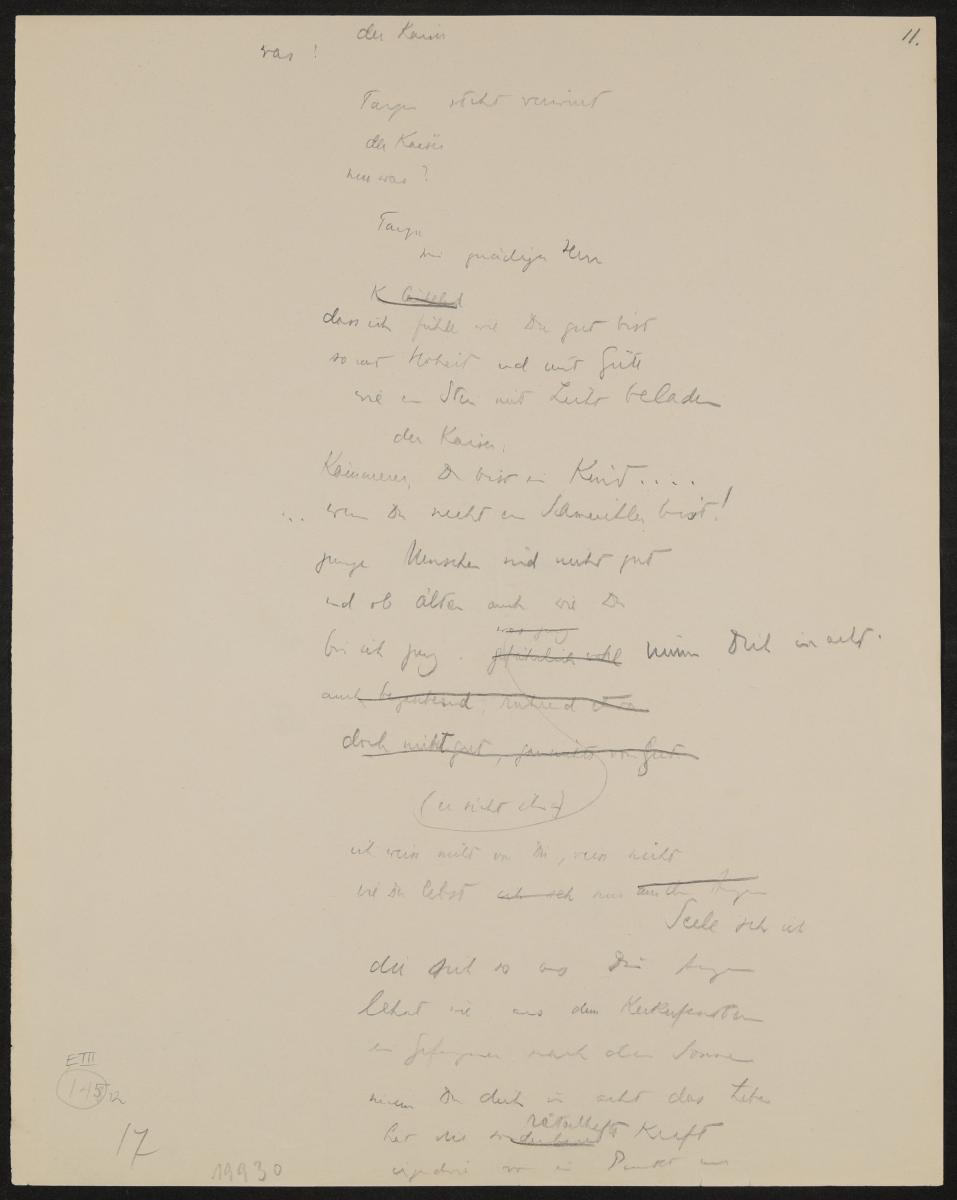 der Kaiser
11.
was !
Tarquin steht verwirrt
der Kaiser
nun was ?
Tarquin
mein gnädiger Herr
K
dass ich fühle wie Du gut bist
so mit Hoheit und mit Güte
wie ein Stern mit Licht beladen
der Kaiser.
Kämmerer, Du bist ein Kind ....
... wenn Du nicht ein Schmeichler bist!
junge Menschen sind nicht gut
und ob älter auch wie Du
bin ich jung. gefährlich wohl nimm Dich in acht.
was jung
auch
doch nicht gut, von Gut
(er sieht ihn an)
ich weiss nicht von Dir, weiss nicht
wie Du lebst ich seh nur aus den Augen
Seele seh ich
die sich so aus Deinen Augen
lehnt wie aus dem Kerkerfenster
ein Gefangener nach der Sonne
nimm Du dich in acht das Leben
hat die rätselhafte Kraft
irgendwie von ein Punkt aus
E III
145.12
17
19930